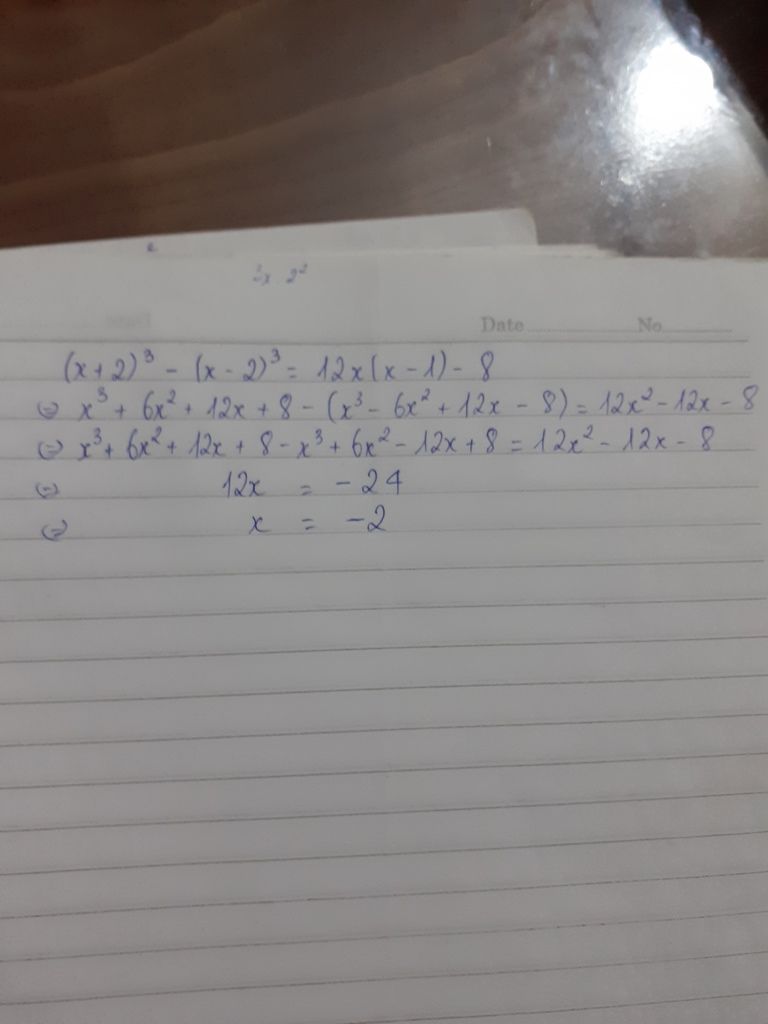 Date No
(x+2)³ - (x-2)³ = 12x(x-1) - 8
⇔ x³ + 6x² + 12x + 8 - (x³ - 6x² + 12x - 8) = 12x² - 12x - 8
⇔ x³ + 6x² + 12x + 8 - x³ + 6x² - 12x + 8 = 12x² - 12x - 8
⇔ 12x = -24
⇔ x = -2